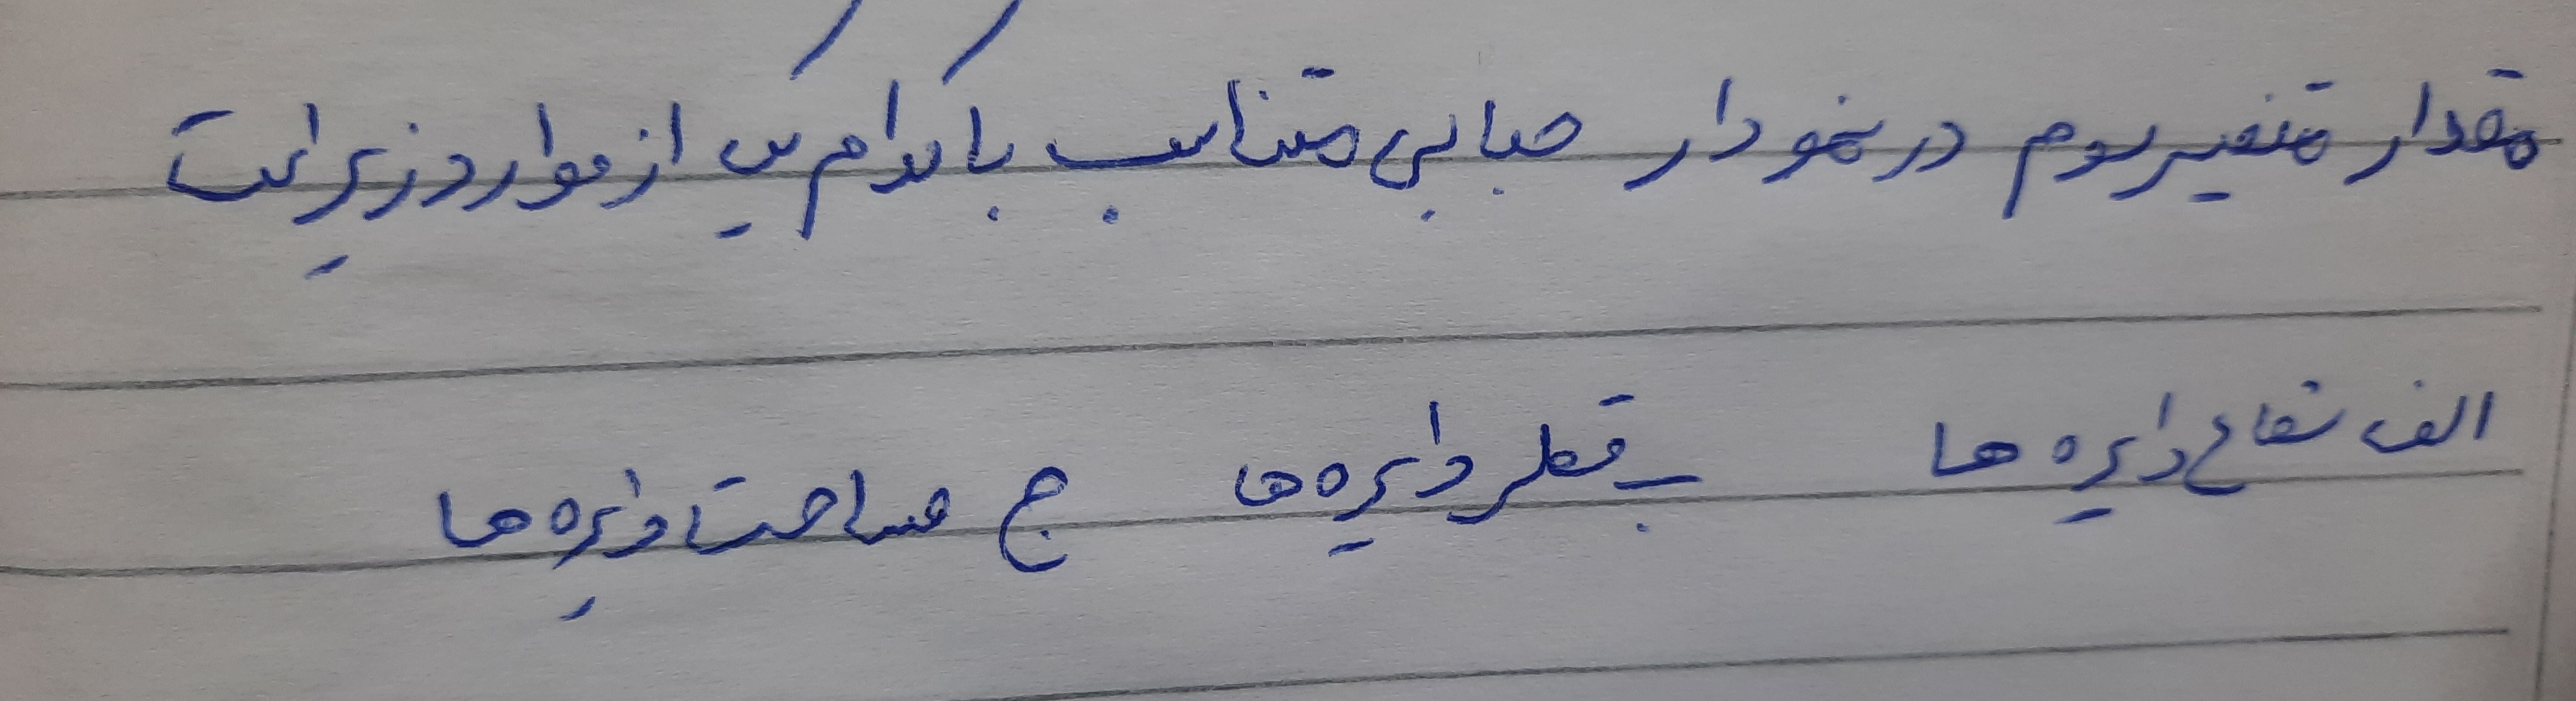 مقدار متغیر سوم در نمودار حبابی متناسب با کدام یک از موارد زیر است
الف شعاع دایره ها ب قطر دایره ها ج مساحت دایره ها